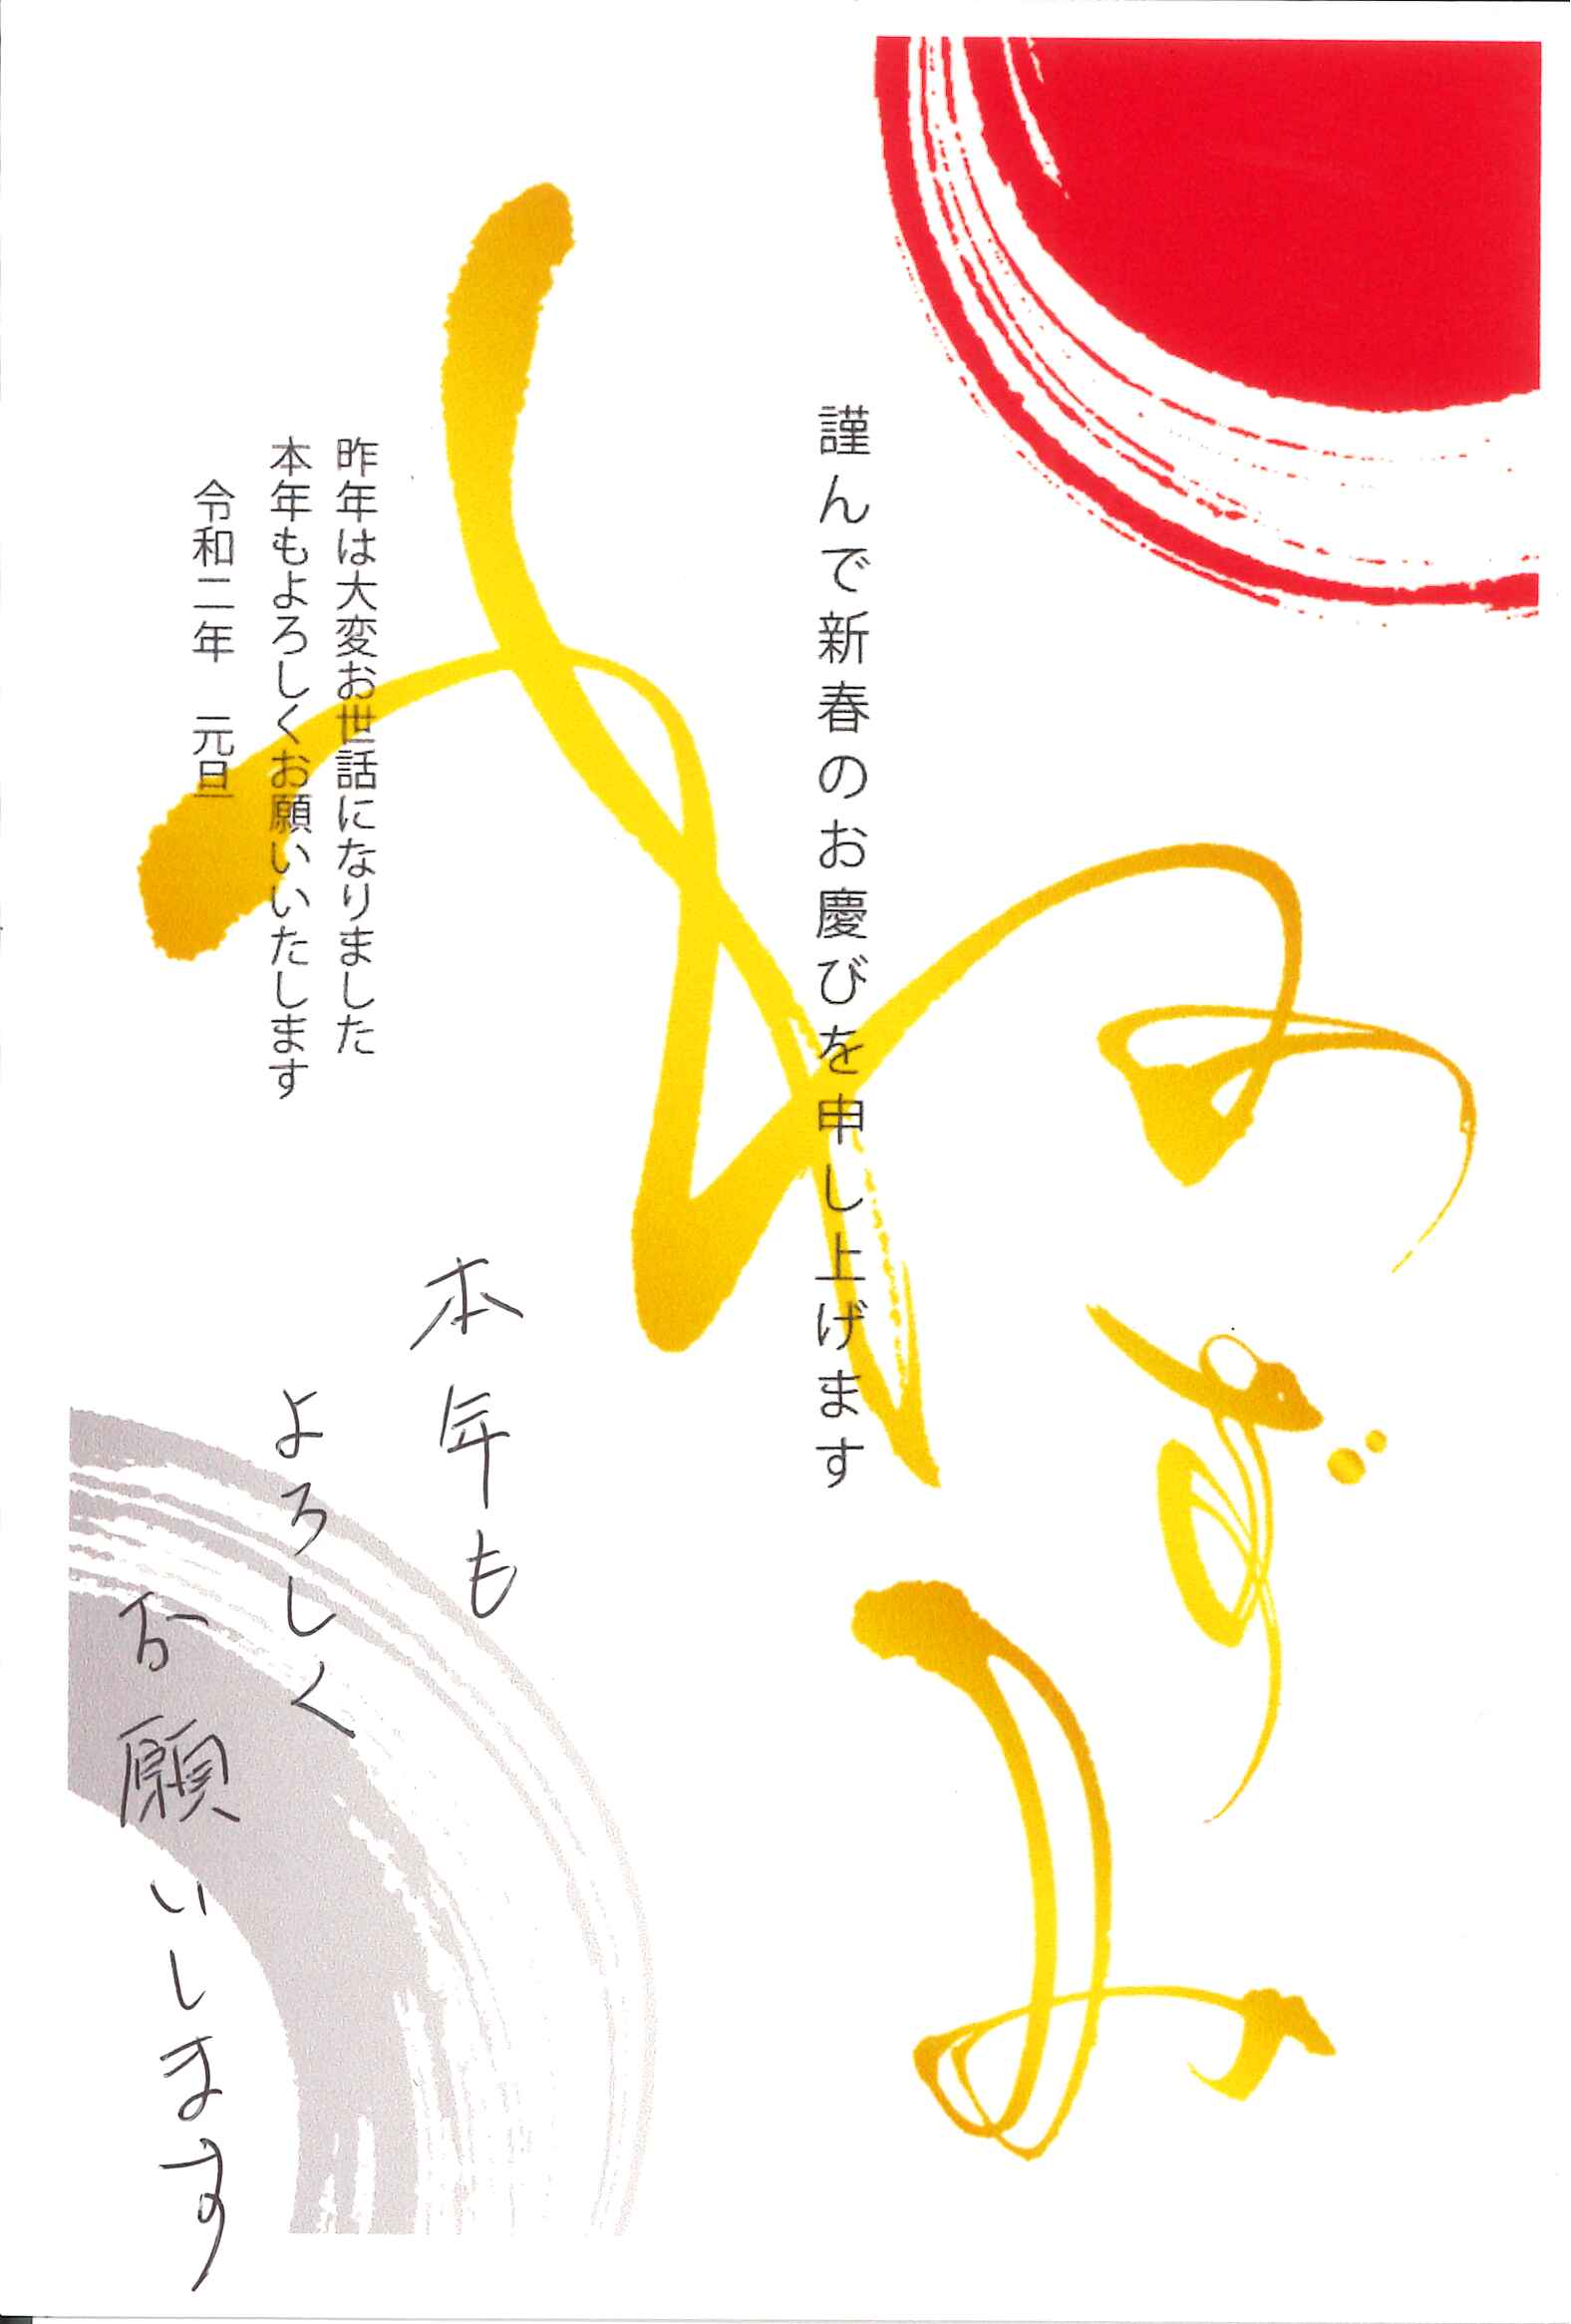 謹んで新春のお慶びを申し上げます
昨年は大変お世話になりました
本年もよろしくお願いいたします
令和二年 元旦
本年も
よろしく
お願いします